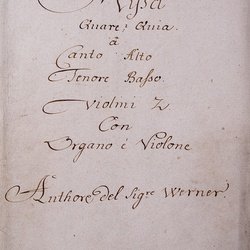 Missa
Quare, Quia
à
Canto Alto
Tenore Basso.
Violini 2
Con
Organo è Violone
Authore del Sigre Werner.